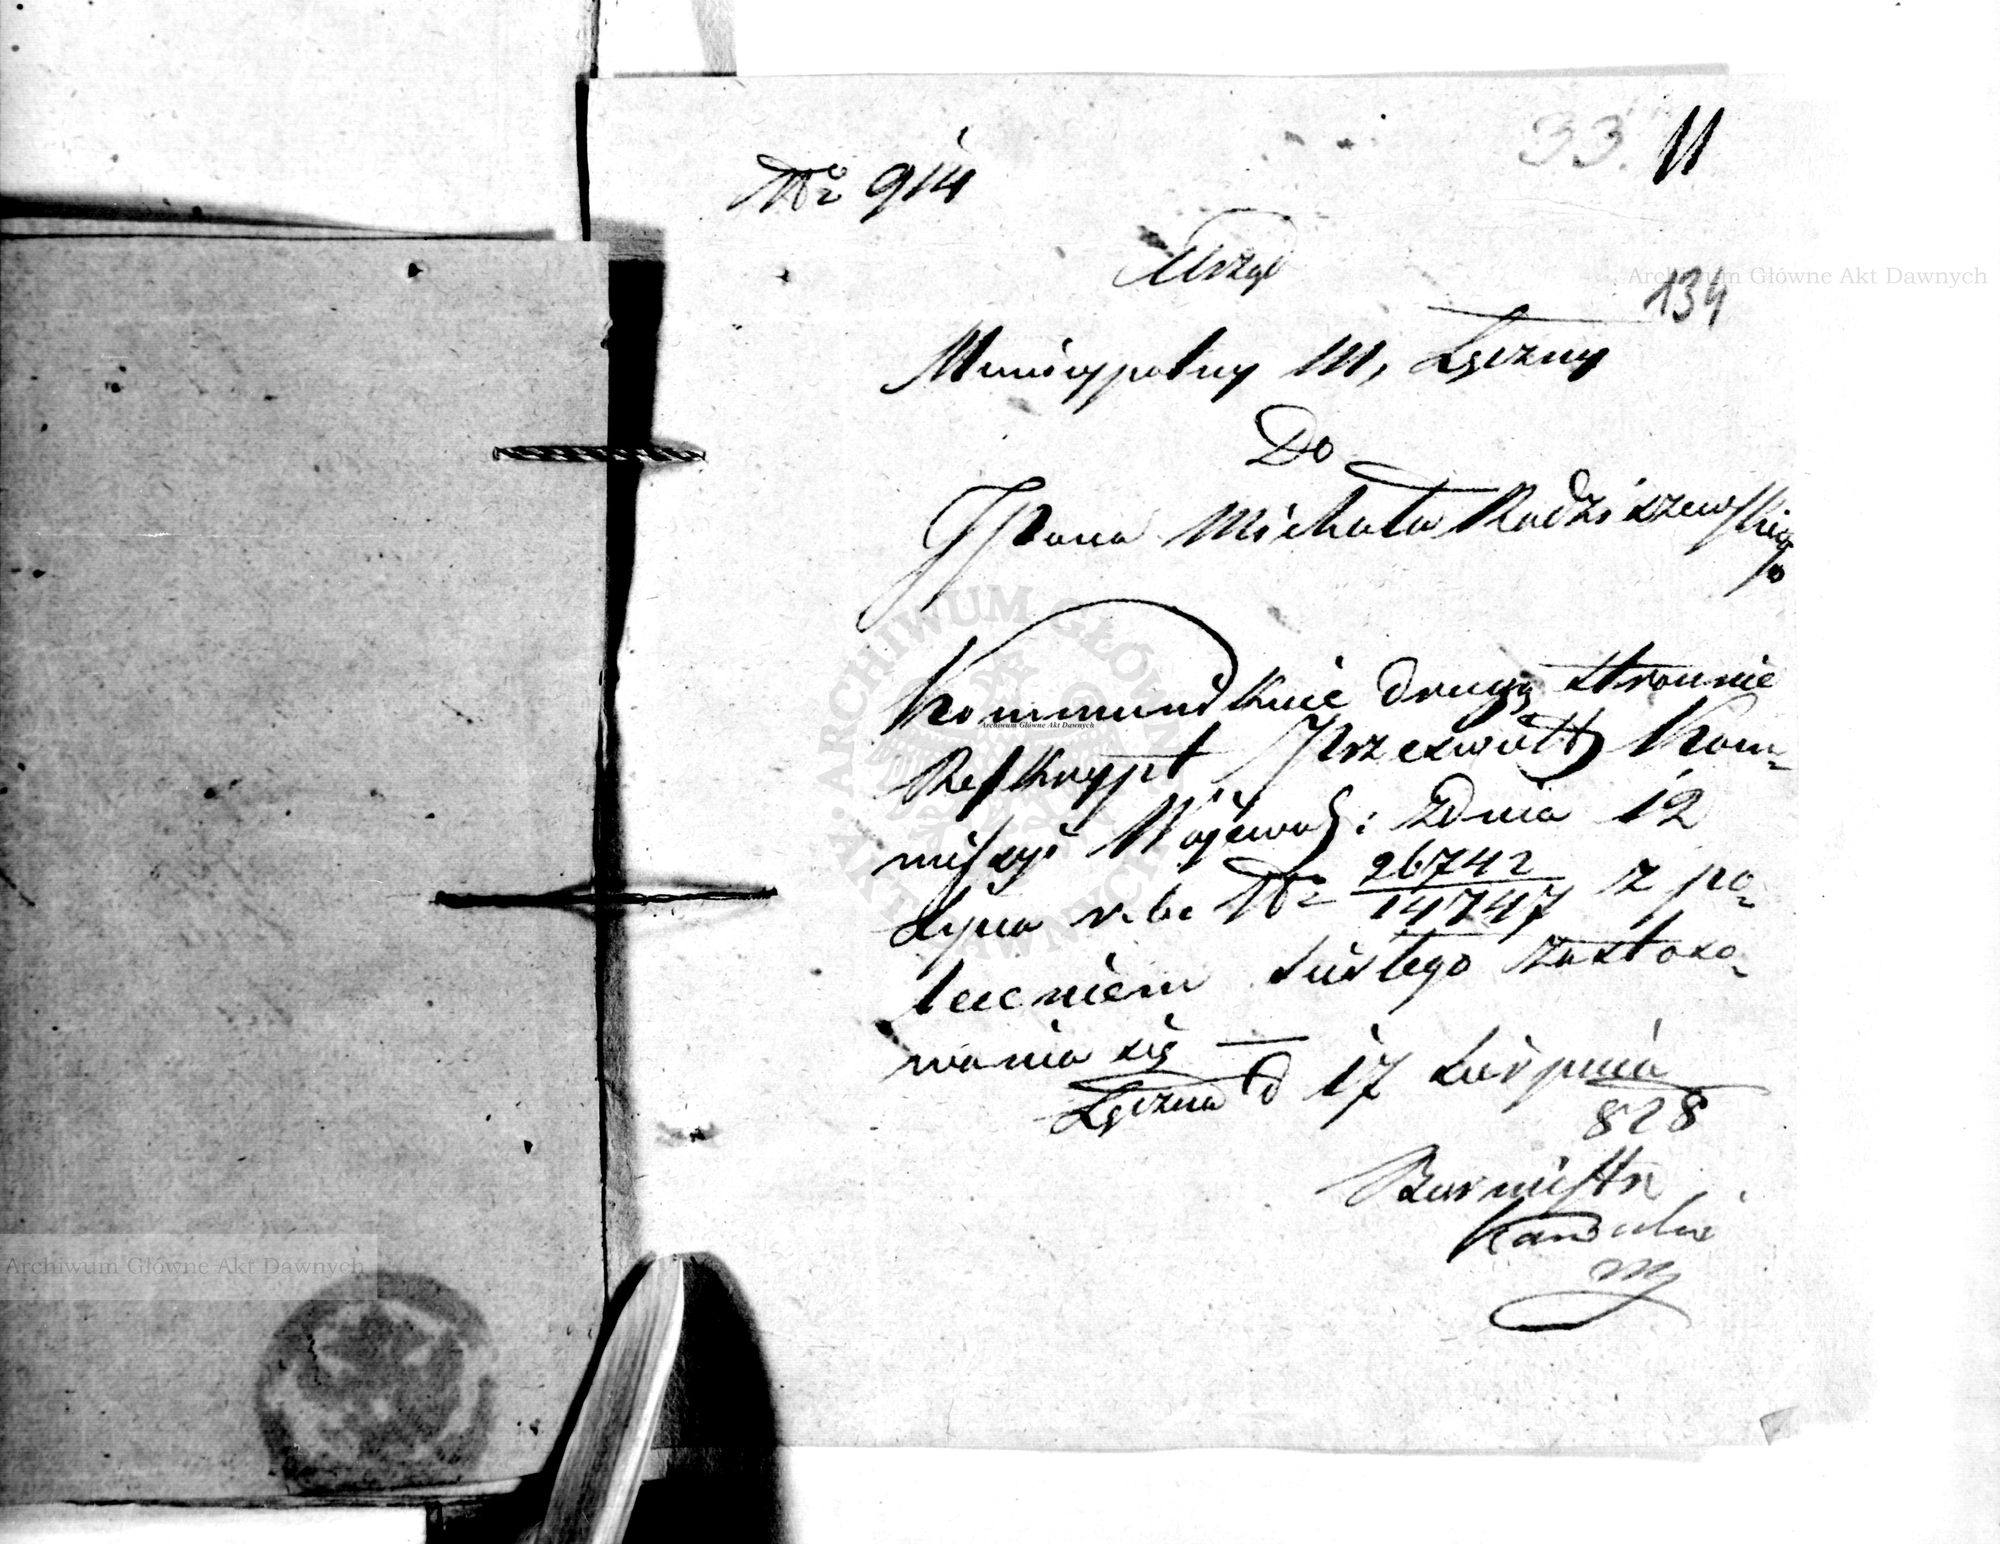 33.
No 914
134
Urząd
Municypalny M, Łęczny
Do
JPana Michała Radziszewskiego
Kommunikuie drugą stronnie
Reskrypt Prześwitł Kom-
missyi Wojewod: Zdnia 12
Lipca r. b. No 26742/14747 z po-
leceniem ścisłego zastoso-
wania się —
Łęczna d 17 Sierpnia
828
Burmistrz
Archiwum Główne Akt Dawnych
Archiwum Główne Akt Dawnych
Archiwum Główne Akt Dawnych
ARCHIWUM GŁÓWNE AKT DAWNYCH